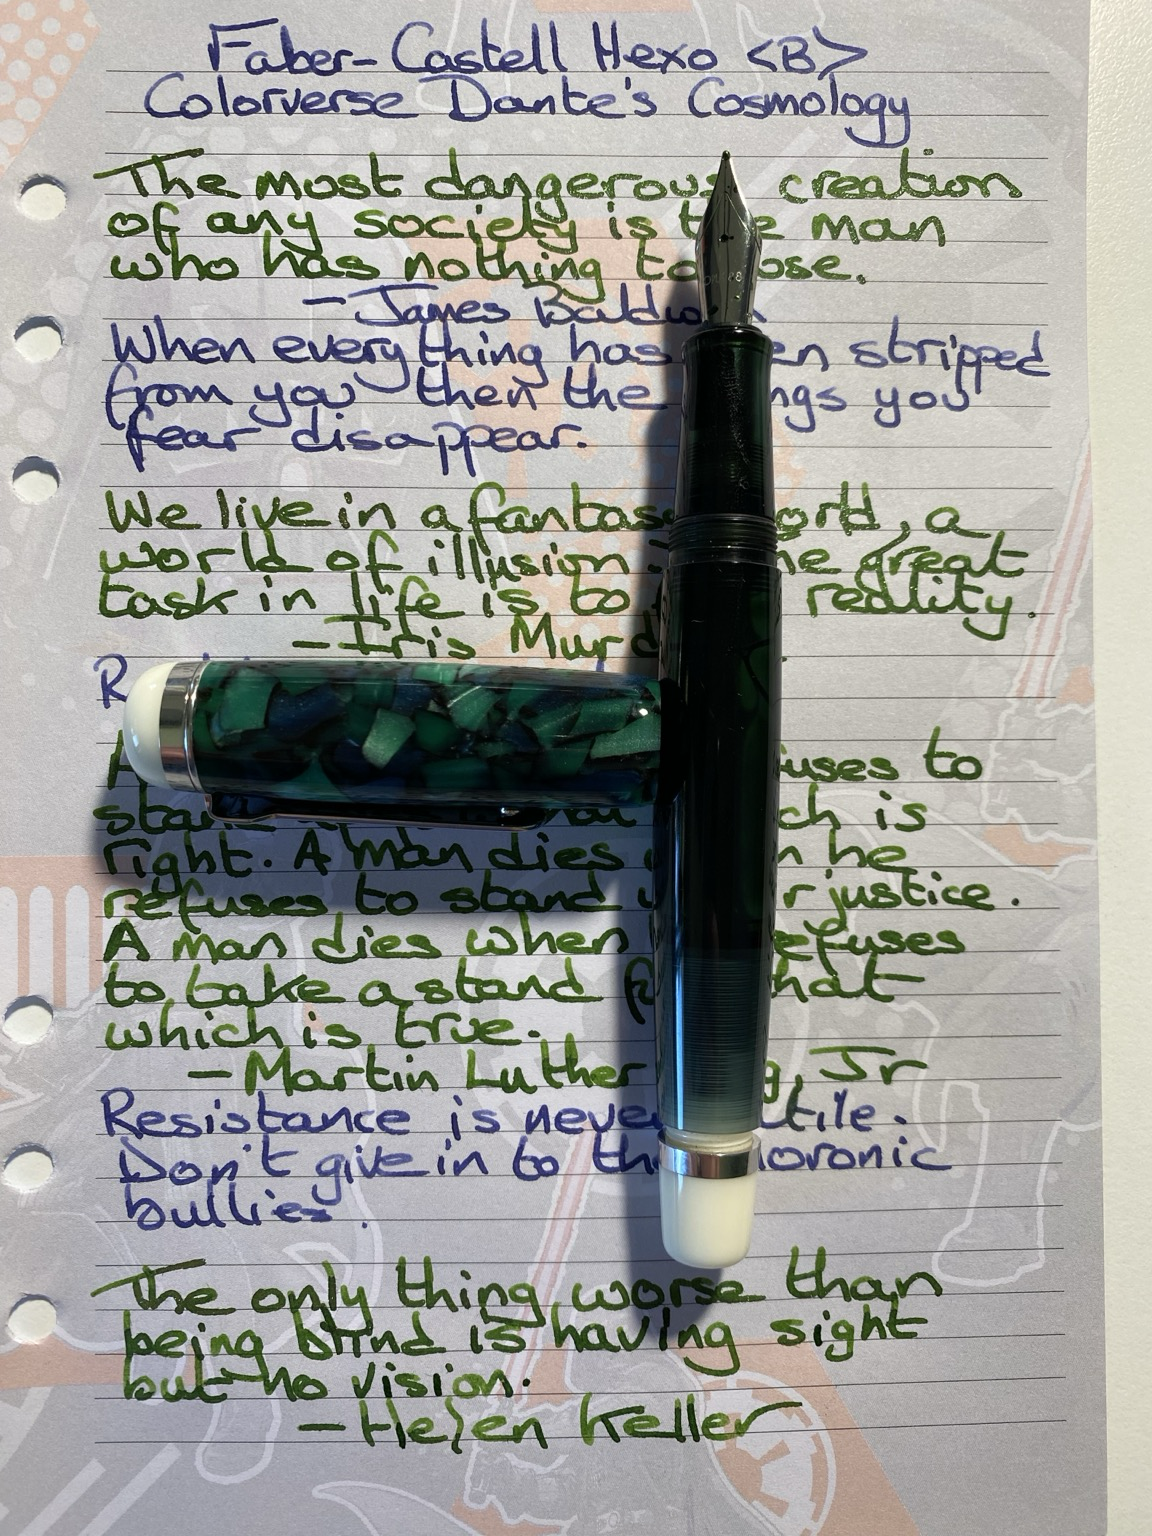 Faber-Castell Hexo <B>
Colorverse Dante's Cosmology
The most dangerous creation
of any society is the man
who has nothing to lose.
- James Baldwin
When everything has been stripped
from you then the things you
fear disappear.
We live in a fantasy world, a
world of illusion. The great
task in life is to reality.
- Iris Murdoch
A refuses to
stand which is
right. A man dies when he
refuses to stand up for justice.
A man dies when he refuses
to take a stand for that
which is true.
- Martin Luther King, Jr
Resistance is never futile.
Don't give in to the moronic
bullies.
The only thing worse than
being blind is having sight
but no vision.
- Helen Keller